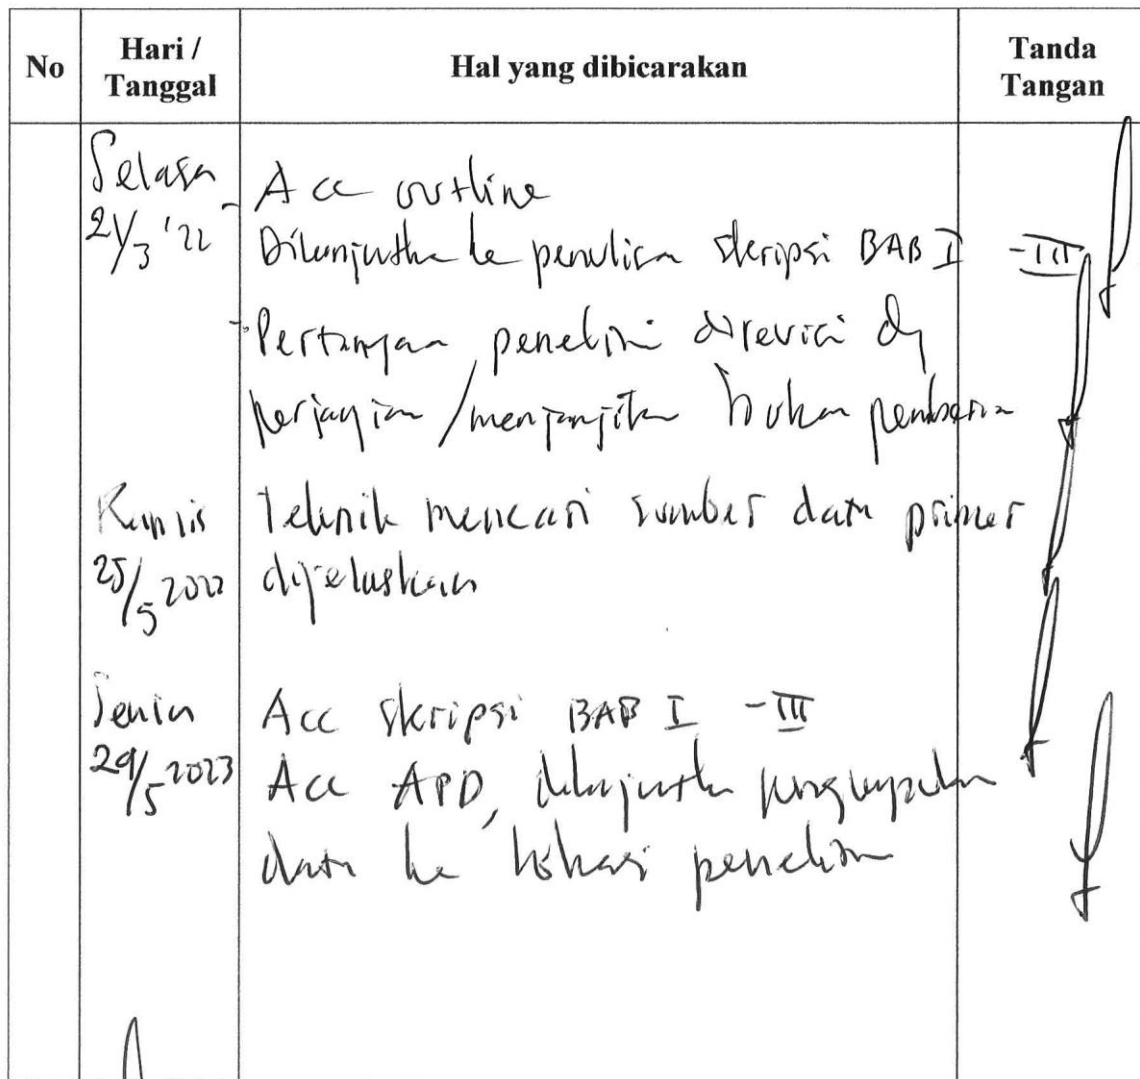 No
Hari /
Tanggal
Hal yang dibicarakan
Tanda
Tangan
Selasa
21/3 '22
- Acc outline
Dilanjutka ke penulisa skripsi BAB I - III
- Pertanyaan penelitin direvisi dg
perjanjian / menjanjika bukan pemberia
Kamis
25/5 2022
Teknik mencari sumber data primer
dijelaskan
Senin
29/5 2023
Acc skripsi BAB I - III
Acc APD, dilanjutka pengumpulan
data ke lokasi penelitin